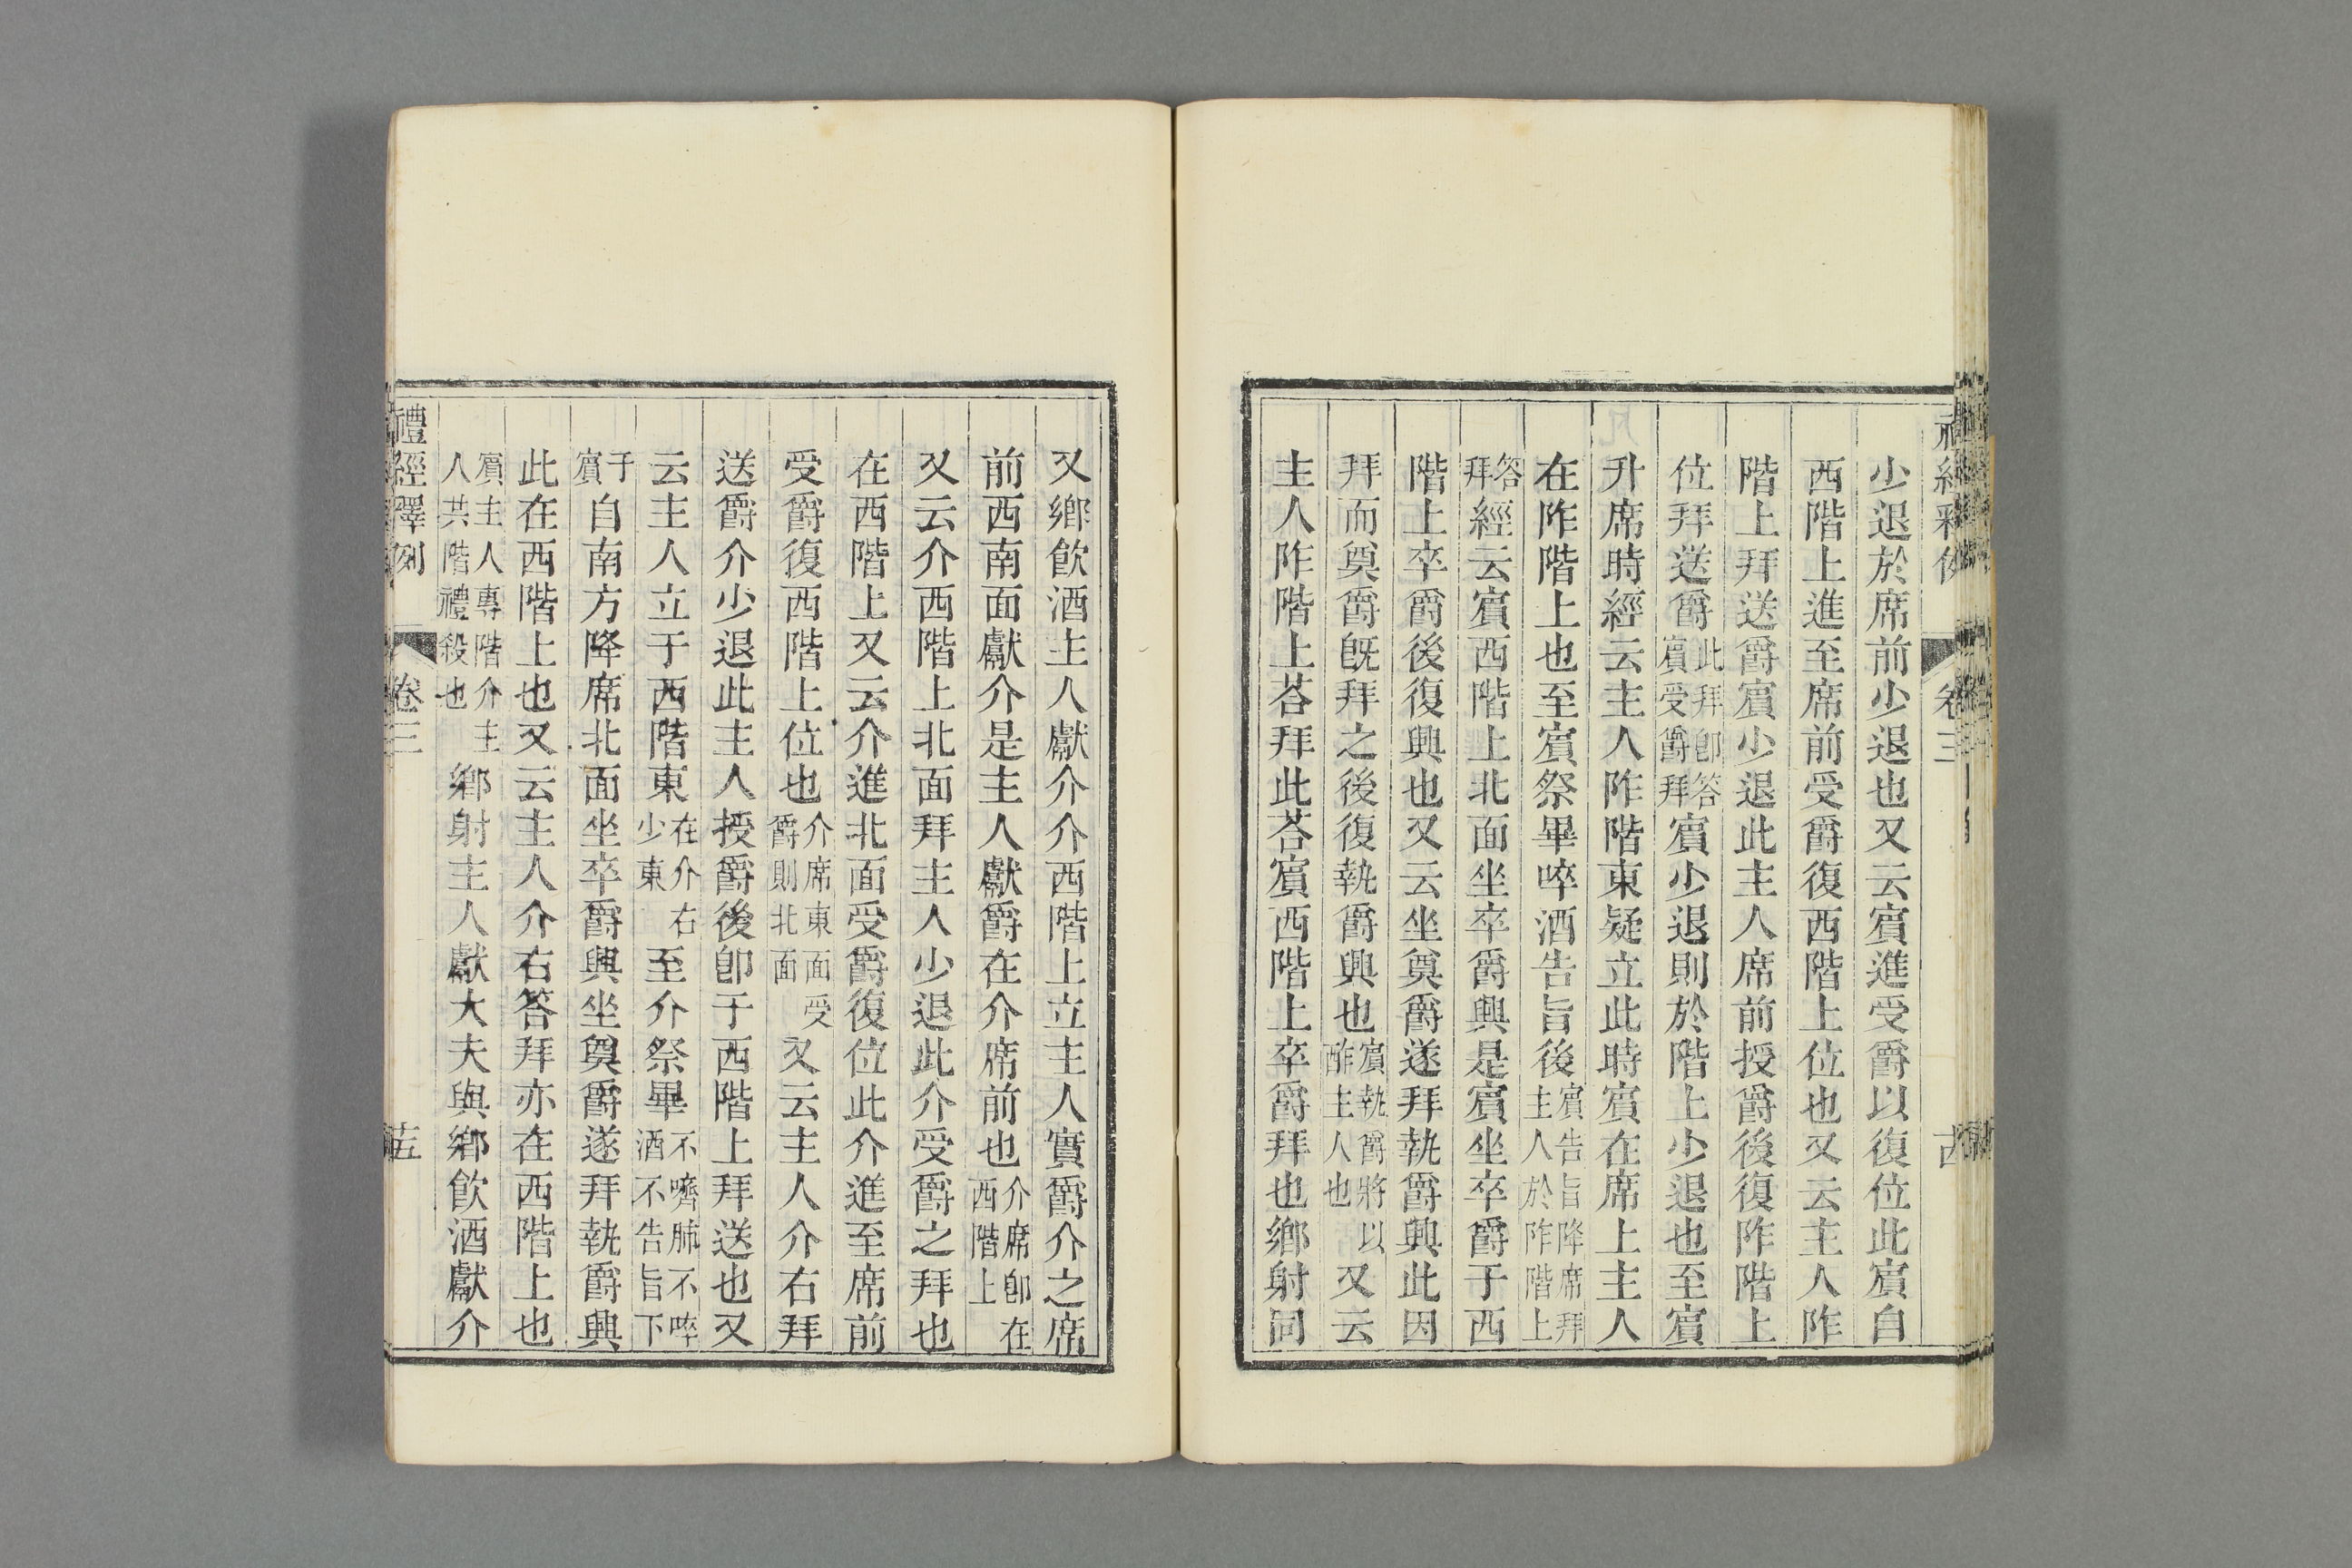 少退於席前少退也又云賓進受爵以復位此賓自
西階上進至席前受爵復西階上位也又云主人阼
階上拜送爵賓少退此主人席前授爵後復阼階上
位拜送爵此拜卽答賓受爵拜賓少退則於階上少退也至賓
升席時經云主人阼階東疑立此時賓在席上主人
在阼階上也至賓祭畢啐酒告旨後賓告旨降席拜主人於阼階上
答拜經云賓西階上北面坐卒爵興是賓坐卒爵于西
階上卒爵後復興也又云坐奠爵遂拜執爵興此因
拜而奠爵旣拜之後復執爵興也賓執爵將以酢主人也又云
主人阼階上荅拜此荅賓西階上卒爵拜也鄉射同
又鄉飲酒主人獻介介西階上立主人實爵介之席
前西南面獻介是主人獻爵在介席前也介席卽在西階上
又云介西階上北面拜主人少退此介受爵之拜也
在西階上又云介進北面受爵復位此介進至席前
受爵復西階上位也介席東面受爵則北面又云主人介右拜
送爵介少退此主人授爵後卽于西階上拜送也又
云主人立于西階東在介右少東至介祭畢不嚌肺不啐酒不告旨下
于賓自南方降席北面坐卒爵興坐奠爵遂拜執爵興
此在西階上也又云主人介右答拜亦在西階上也
賓主人專階介主人共階禮殺也鄉射主人獻大夫與鄉飲酒獻介
禮經釋例 卷三 十五